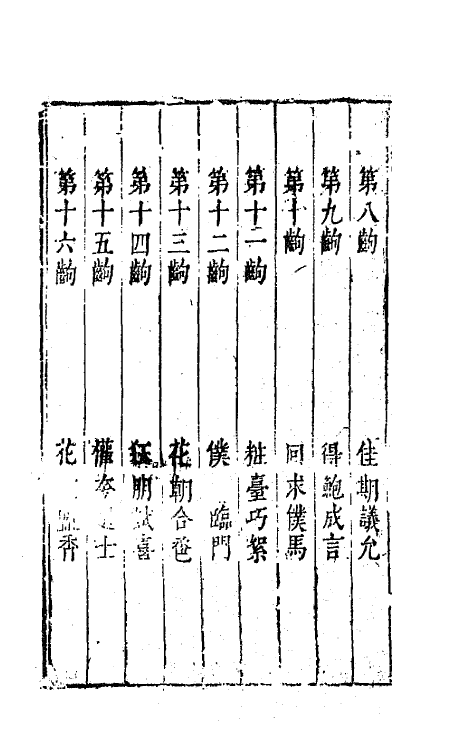 第八齣 佳期議允
第九齣 得鮑成言
第十齣 回求僕馬
第十一齣 粧臺巧絮
第十二齣 僕 臨門
第十三齣 花朝合卺
第十四齣 狂朋試喜
第十五齣 權夸 士
第十六齣 花 香